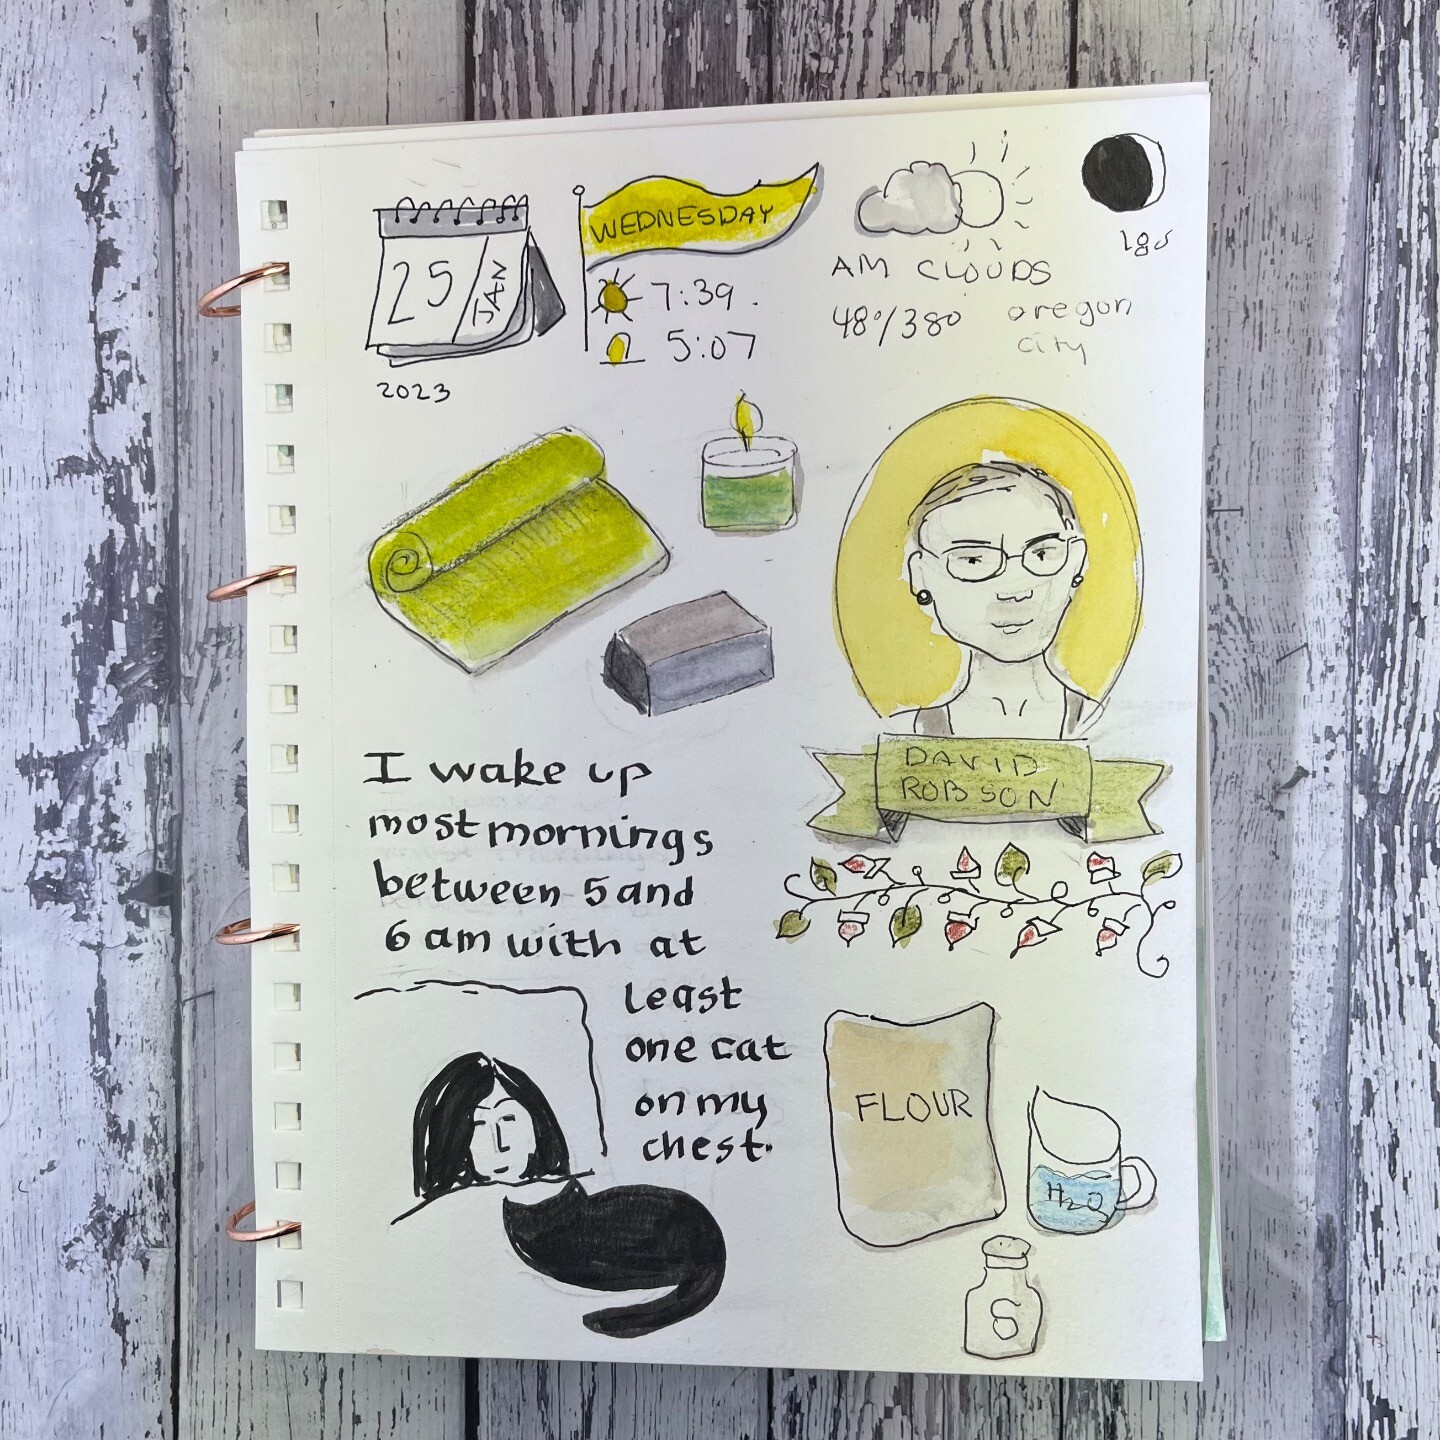 25
JAN
2023
WEDNESDAY
7:39.
5:07
AM CLOUDS
48°/38°
oregon
city
DAVID
ROBSON
I wake up
most mornings
between 5 and
6 am with at
least
one cat
on my
chest.
FLOUR
H2O
S